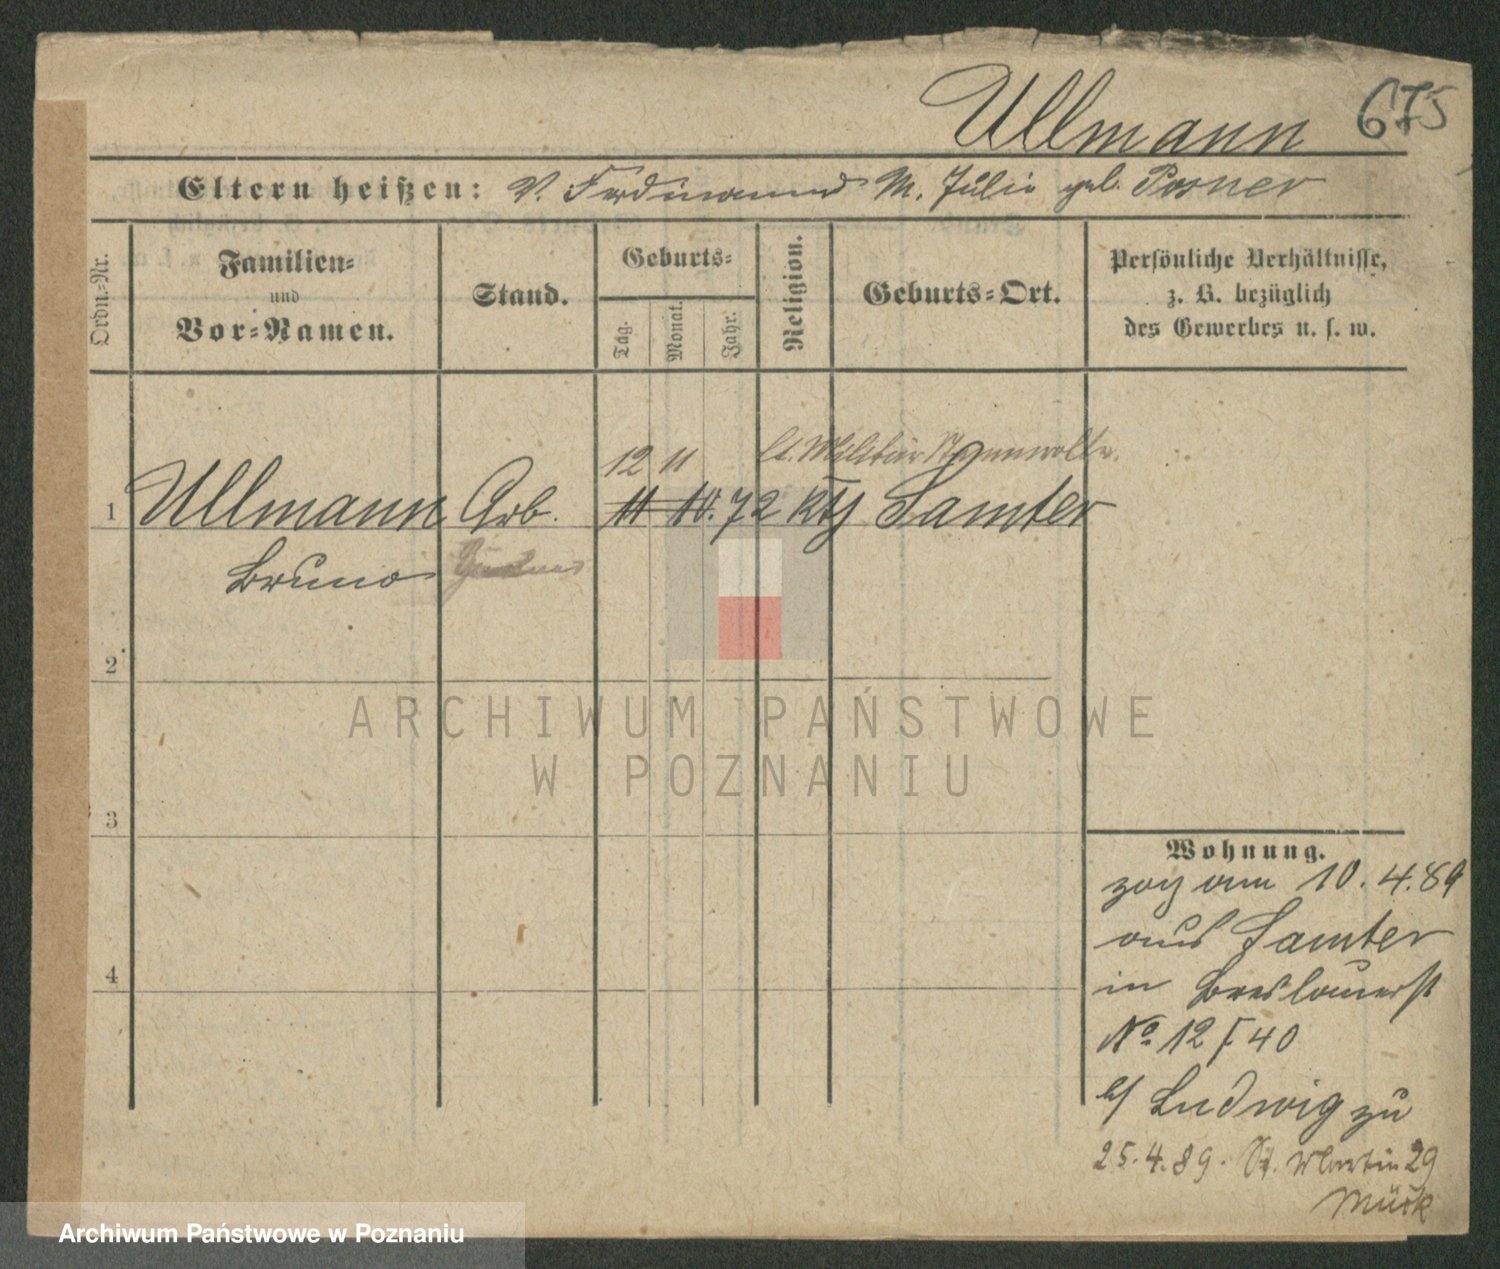 Ullmann 675
Eltern heißen: V. Ferdinand M. Julie geb. Posner
Ordn.-Nr.
Familien-
und
Vor-Namen.
Stand.
Geburts-
Tag.
Monat.
Jahr.
Religion.
Geburts-Ort.
Persönliche Verhältnisse,
z. B. bezüglich
des Gewerbes u. s. w.
12 11 lt. Militär
1 Ullmann Arb. 11 10. 72 kth Samter
Bruno
2
3
4
Wohnung.
zog am 10. 4. 89
aus Samter
in Breslauerst
No 12 / 40
b/ Ludwig zu
25. 4. 89. St. Martin 29
ARCHIWUM PAŃSTWOWE
W POZNANIU
Archiwum Państwowe w Poznaniu